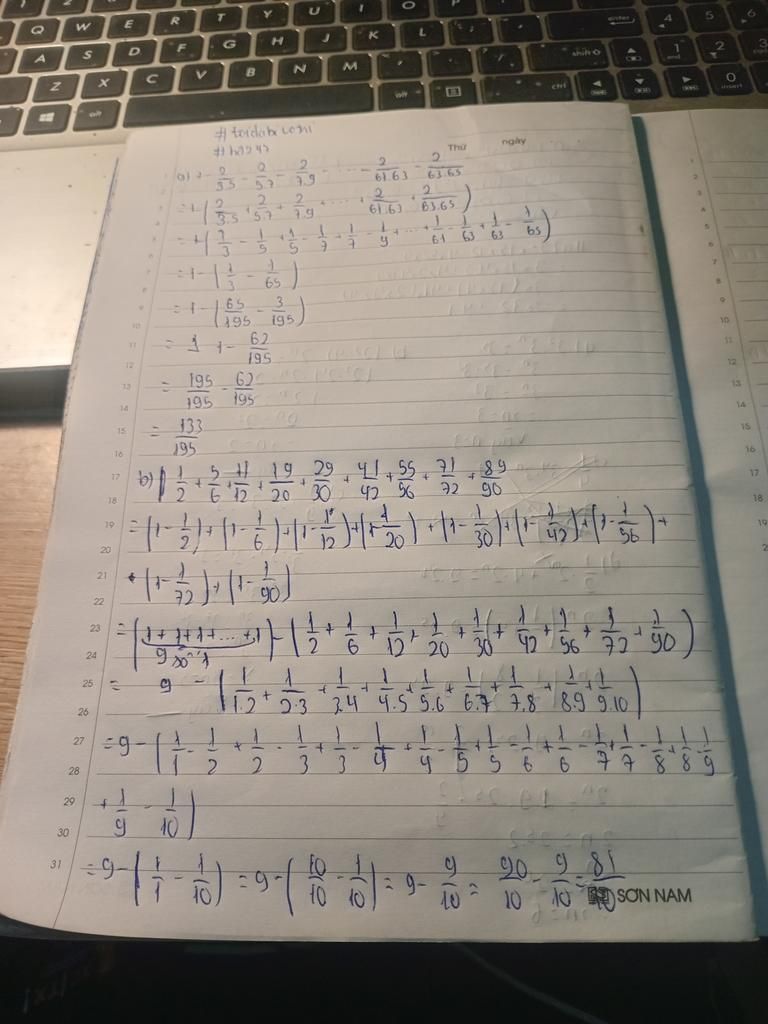 Q W E R T Y U I O P
A S D F G H J K L
Z X C V B N M
alt alt ctrl
enter shift
4 5 6
1 end 2 3
0 insert
Thứ ngày
a) 1 - 2/3.5 - 2/5.7 - 2/7.9 - ... - 2/61.63 - 2/63.65
= 1 - (2/3.5 + 2/5.7 + 2/7.9 + ... + 2/61.63 + 2/63.65)
= 1 - (1/3 - 1/5 + 1/5 - 1/7 + 1/7 - 1/9 + ... + 1/61 - 1/63 + 1/63 - 1/65)
= 1 - (1/3 - 1/65)
= 1 - (65/195 - 3/195)
= 1 - 62/195
= 195/195 - 62/195
= 133/195
b) 1/2 + 5/6 + 11/12 + 19/20 + 29/30 + 41/42 + 55/56 + 71/72 + 89/90
= (1 - 1/2) + (1 - 1/6) + (1 - 1/12) + (1 - 1/20) + (1 - 1/30) + (1 - 1/42) + (1 - 1/56) +
+ (1 - 1/72) + (1 - 1/90)
= (1 + 1 + 1 + ... + 1) - (1/2 + 1/6 + 1/12 + 1/20 + 1/30 + 1/42 + 1/56 + 1/72 + 1/90)
9 số 1
= 9 - (1/1.2 + 1/2.3 + 1/3.4 + 1/4.5 + 1/5.6 + 1/6.7 + 1/7.8 + 1/8.9 + 1/9.10)
= 9 - (1/1 - 1/2 + 1/2 - 1/3 + 1/3 - 1/4 + 1/4 - 1/5 + 1/5 - 1/6 + 1/6 - 1/7 + 1/7 - 1/8 + 1/8 - 1/9
+ 1/9 - 1/10)
= 9 - (1/1 - 1/10) = 9 - (10/10 - 1/10) = 9 - 9/10 = 90/10 - 9/10 = 81/10
SƠN NAM